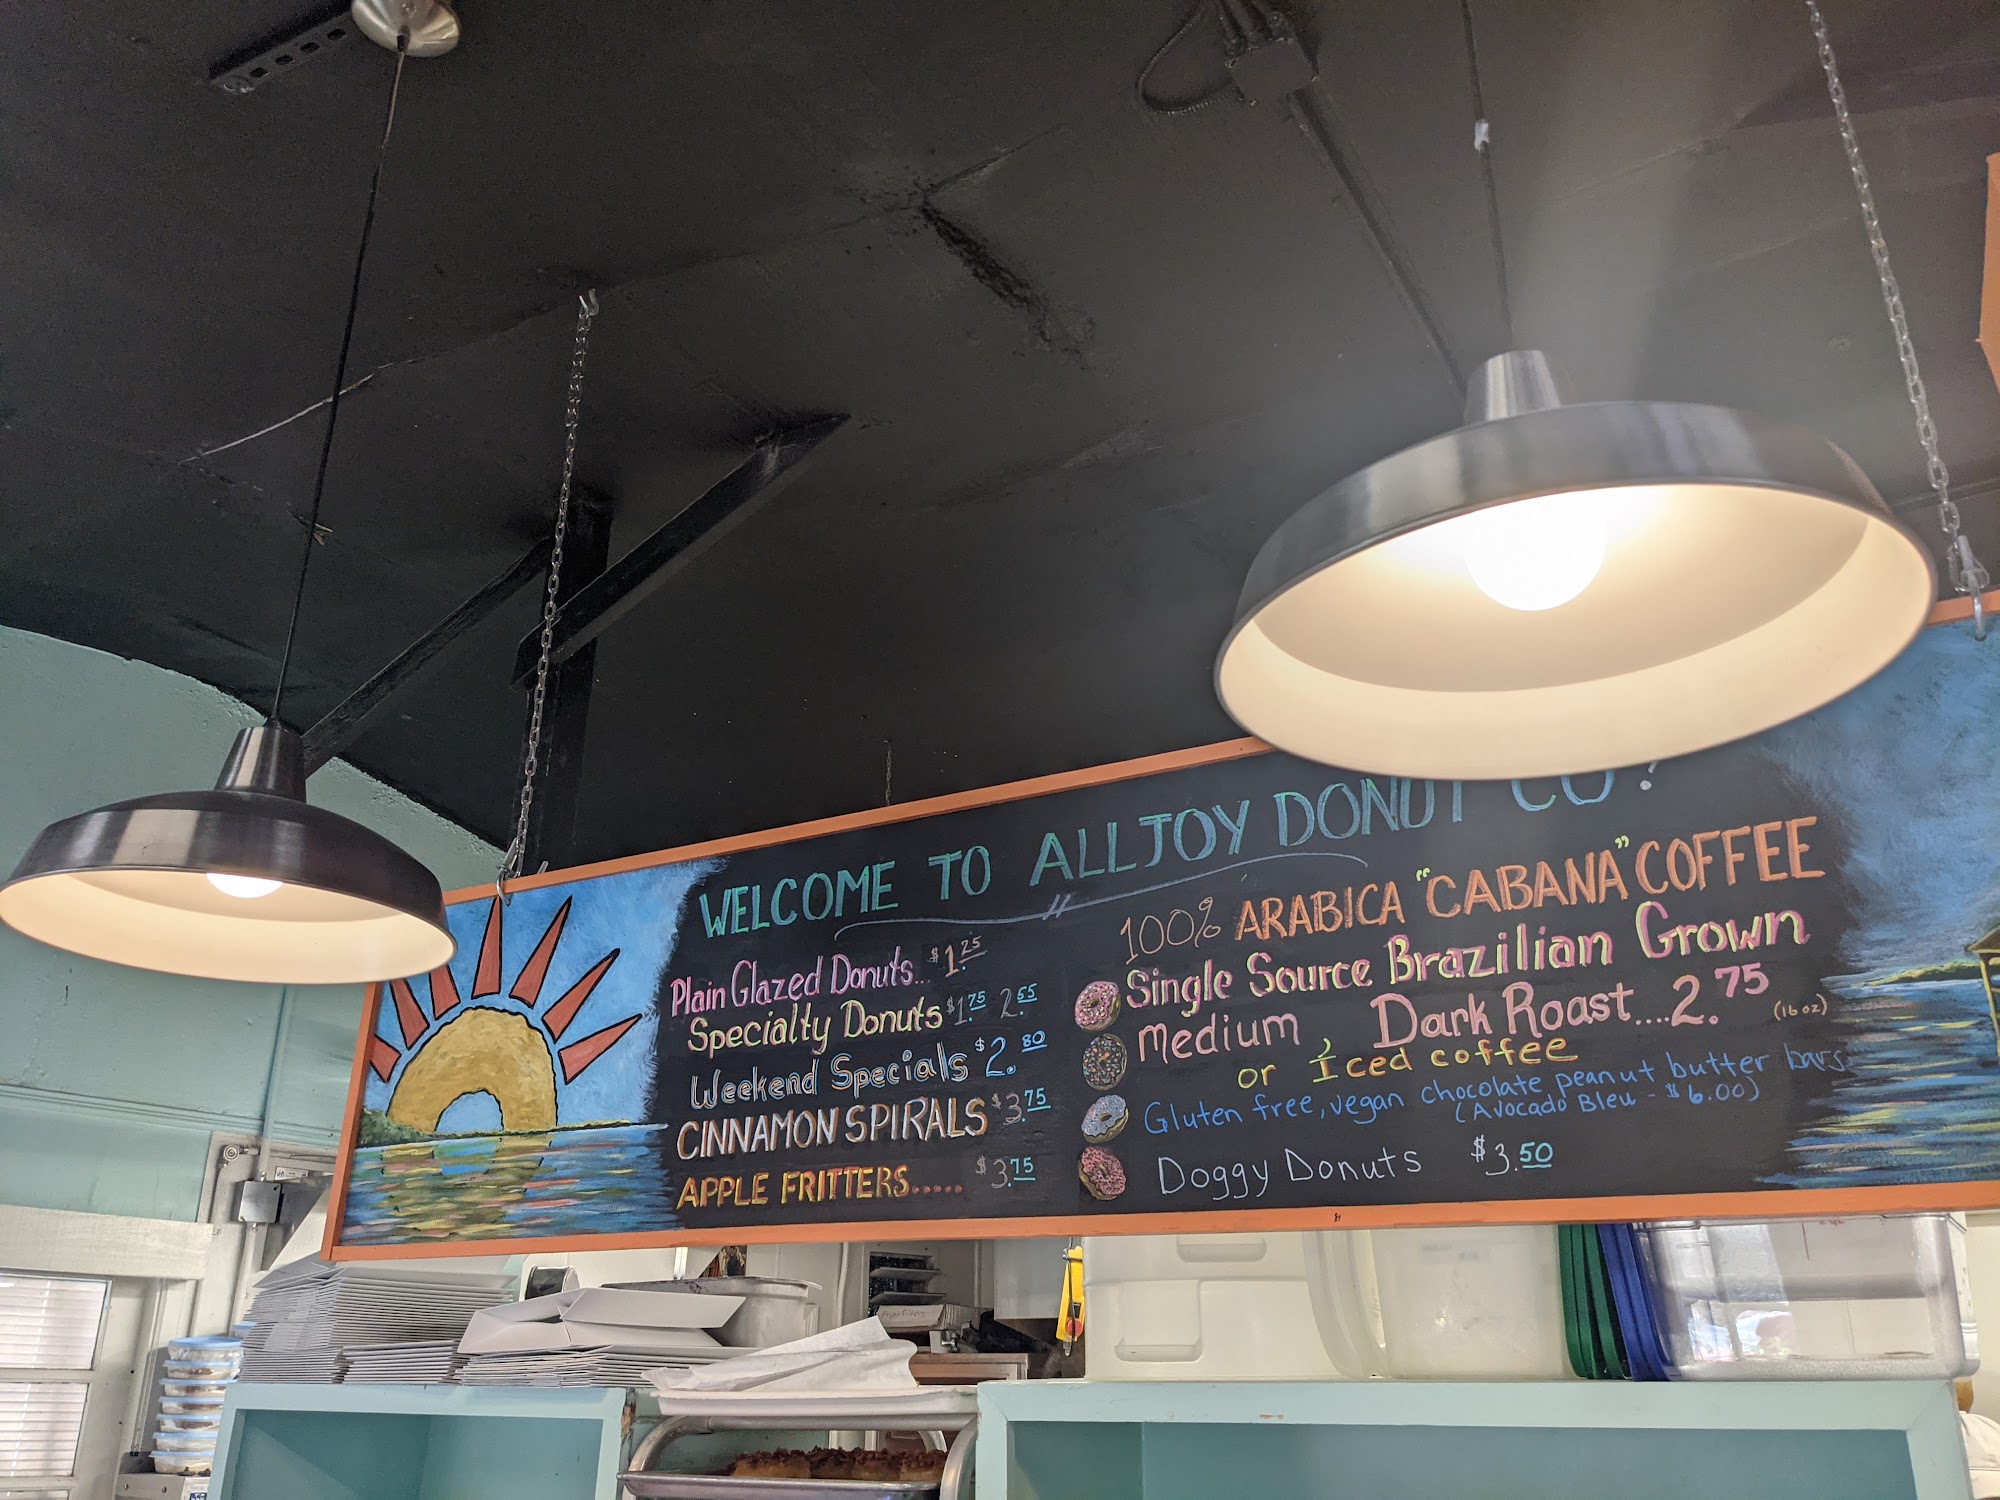 WELCOME TO ALLJOY DONUT CO!
Plain Glazed Donuts... $1.25
Specialty Donuts $1.75 2.55
Weekend Specials $2.80
CINNAMON SPIRALS $3.75
APPLE FRITTERS..... $3.75
100% ARABICA "CABANA" COFFEE
Single Source Brazilian Grown
medium, Dark Roast....2.75 (16 oz)
or Iced coffee
Gluten free, vegan chocolate peanut butter bars
(Avocado Bleu - $6.00)
Doggy Donuts $3.50